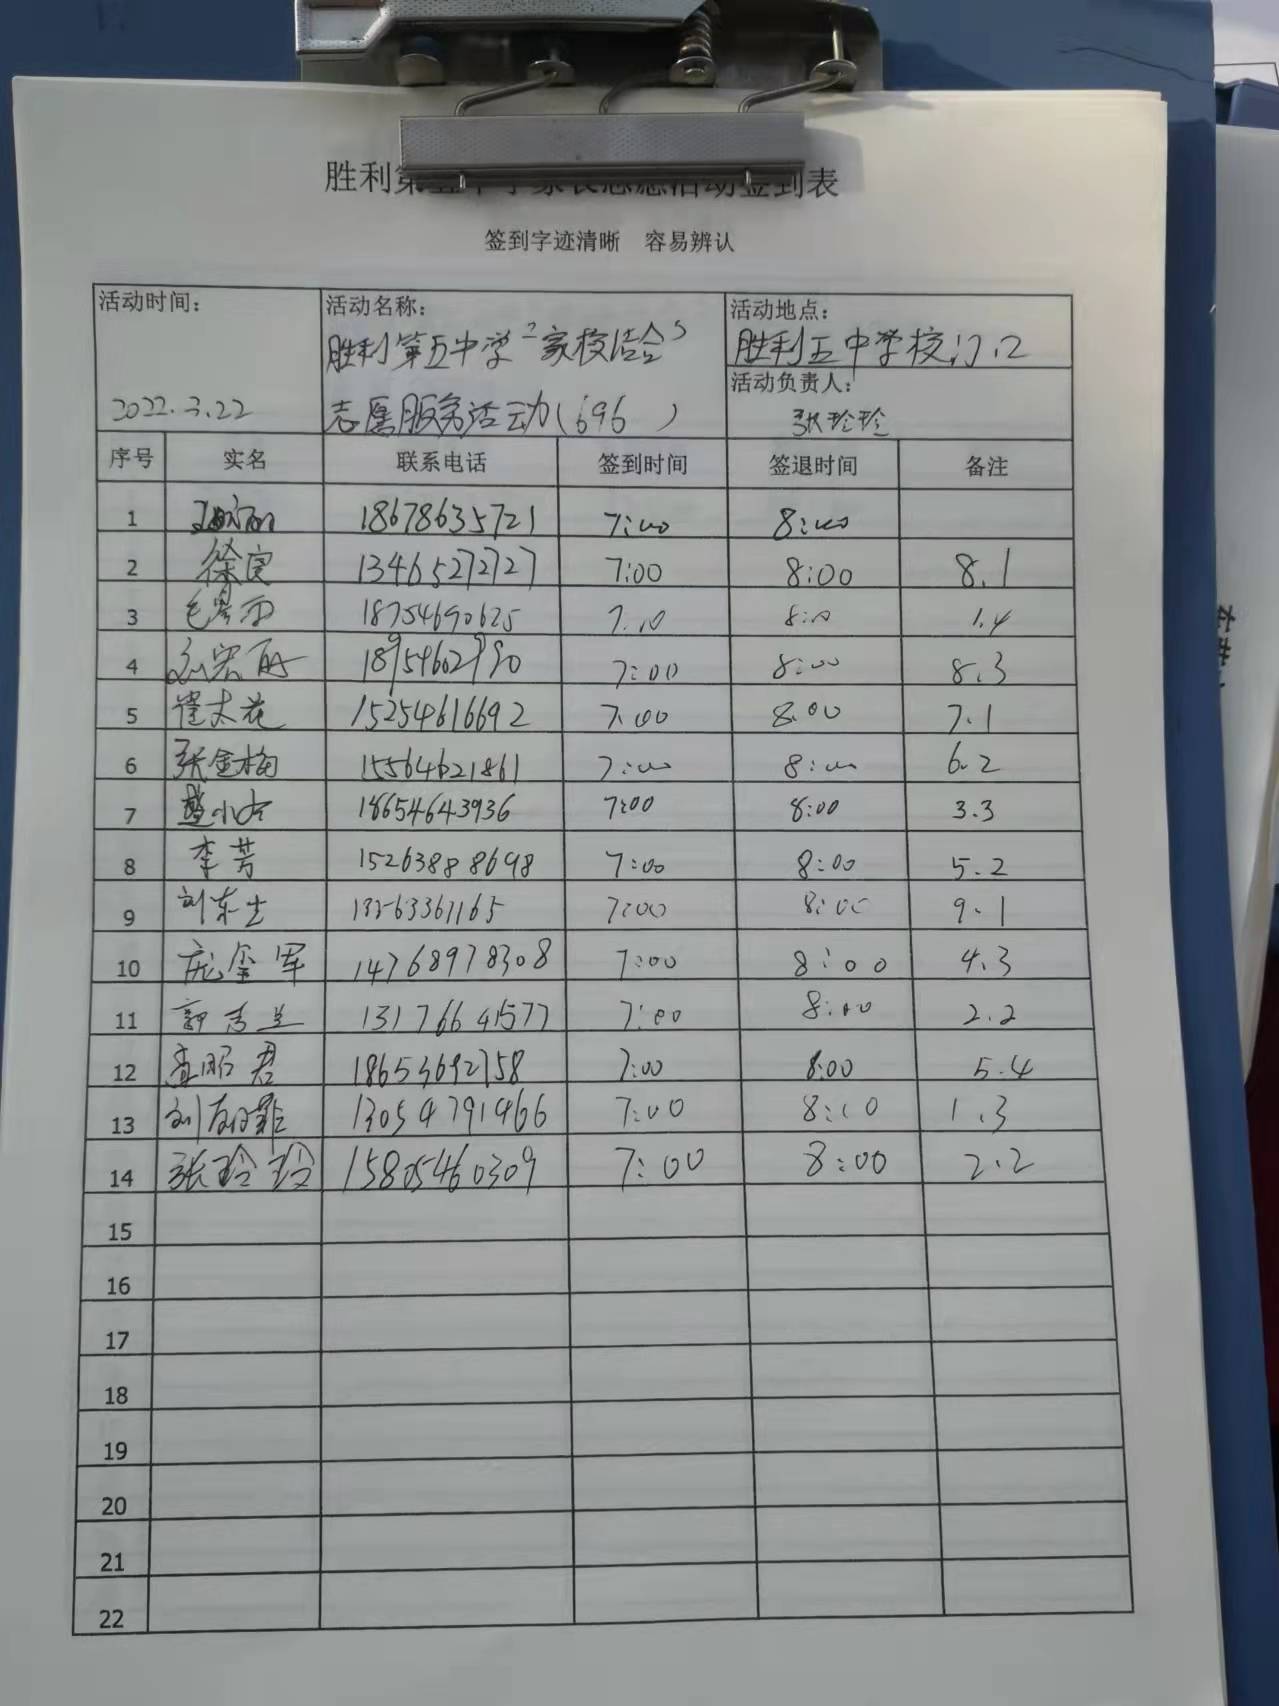 胜利第五中学家长志愿活动签到表
签到字迹清晰 容易辨认
活动时间: 活动名称: 活动地点:
胜利第五中学"家校结合" 胜利五中学校门口
活动负责人:
2022.3.22 志愿服务活动(696) 张玲玲
序号 实名 联系电话 签到时间 签退时间 备注
1 18678635721 7:00 8:00
2 徐良 13465272727 7:00 8:00 8.1
3 18754690625 7.10 8:00 1.4
4 18954602990 7:00 8:00 8.3
5 崔太花 15254616692 7:00 8:00 7.1
6 张金梅 15564621861 7:00 8:00 6.2
7 18654643936 7:00 8:00 3.3
8 李芳 15263888698 7:00 8:00 5.2
9 刘东生 13263361165 7:00 8:00 9.1
10 庞金军 14768978308 7:00 8:00 4.3
11 郭秀兰 13176641577 7:00 8:00 2.2
12 18653692758 7:00 8:00 5.4
13 13054791466 7:00 8:00 1.3
14 张玲玲 15805460309 7:00 8:00 2.2
15
16
17
18
19
20
21
22